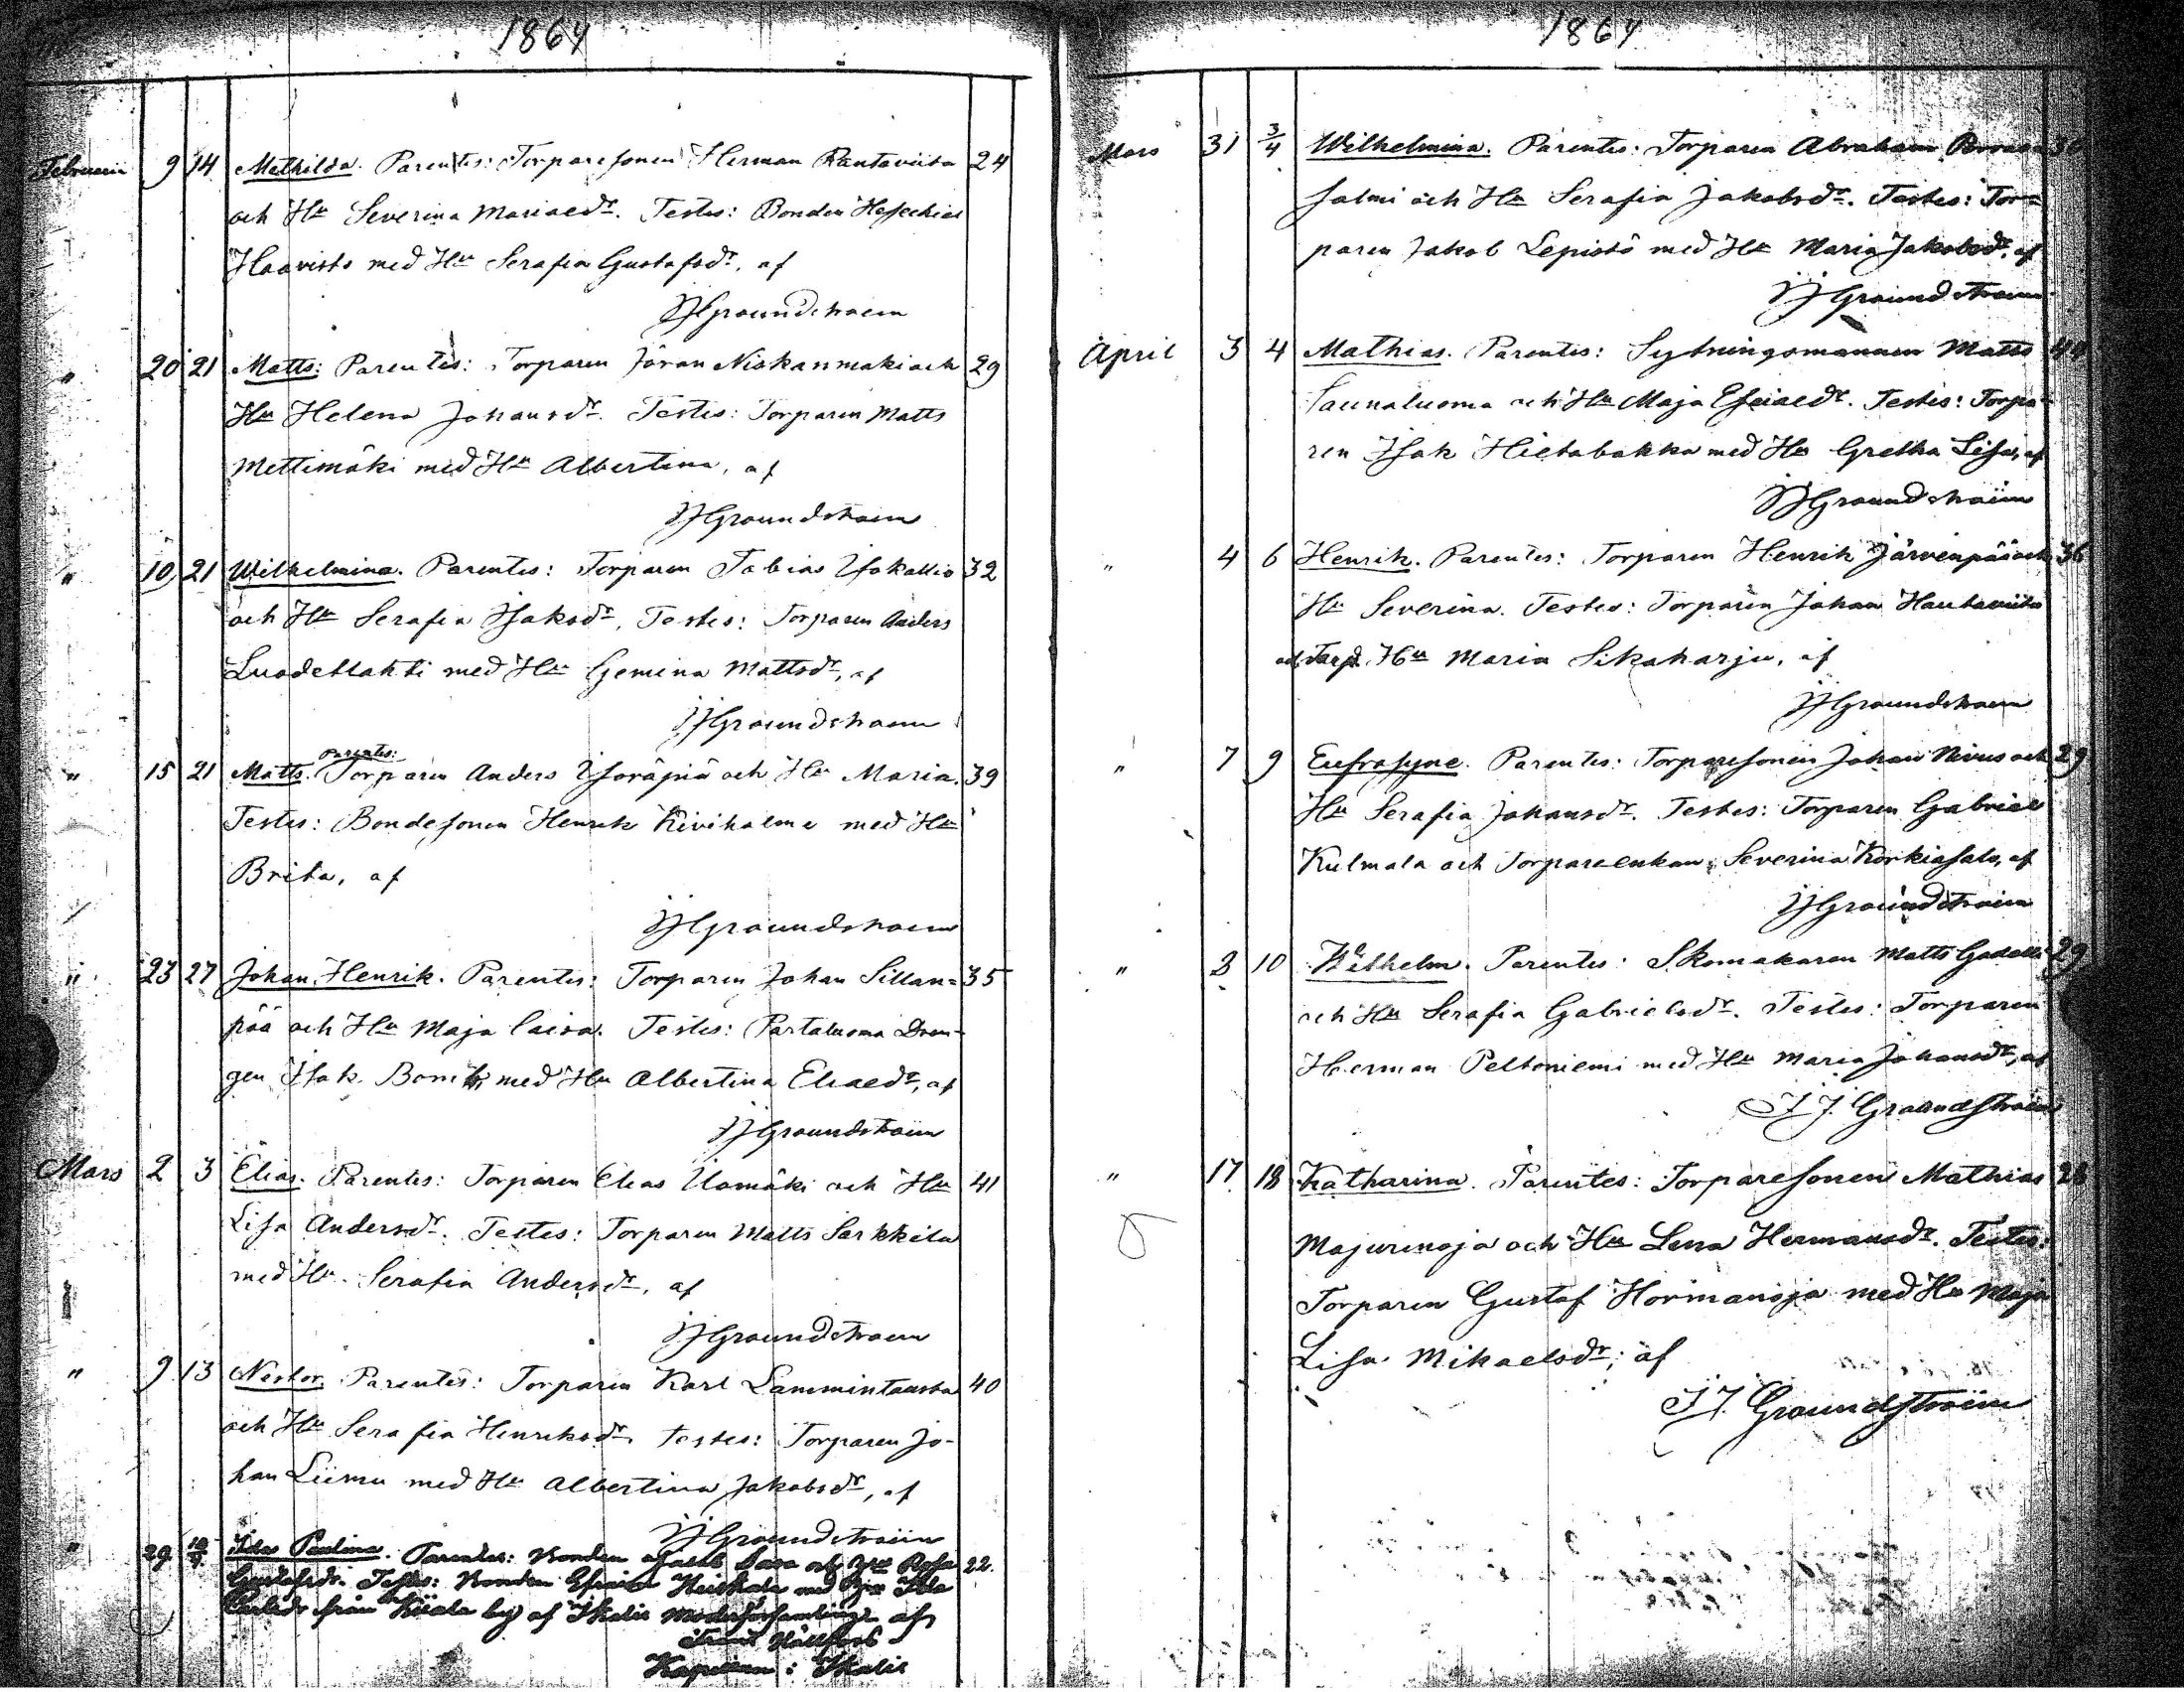 1864
Februarii 9 14 Mathilda. Parentes: Torparesonen Herman Rantaviita 24
och Hu Severina Mariaedr. Testes: Bonden Hesechiel
Haavisto med Hu Serafia Gustafsdr, af
JJGroundstroem
" 20 21 Matts: Parentes: Torparen Jöran Niskanmaki och 29
Hu Helena Johansdr. Testes: Torparen Matts
Mettimäki med Hu Albertina, af
JJGroundstroem
" 10 21 Wilhelmina. Parentes: Torparen Tobias Isokallio 32
och Hu Serafia Isaksdr, Testes: Torparen Anders
Luodeslahti med Hu Gemina Mattsdr, af
JJGroundstroem
" 15 21 Matts. Parentes: Torparen Anders och Hu Maria. 39
Testes: Bondesonen Henrik Kiviholme med Hu
Brita, af
JJGroundstroem
" 23 27 Johan Henrik. Parentes: Torparen Johan Sillan= 35
pää och Hu Maja Caisa. Testes: Partaluoma Dren-
gen Isak med Hu Albertina Eliaedr, af
JJGroundstroem
Mars 2 3 Elias. Parentes: Torparen Elias Uamäki och Hu 41
Lisa Andersdr. Testes: Torparen Matts Sarkkila
med Hu Serafia Andersdr, af
JJGroundstroem
" 9 13 Nestor. Parentes: Torparen Karl Lammintausta 40
och Hu Serafia Henriksdr, testes: Torparen Jo-
han Liimu med Hu Albertina Jakobsdr, af
JJGroundstroem
" 29 Ida Paulina. Parentes: Bonden och Hu Rosa 22.
Gustafsdr. Testes: Bonden Efraim Heiskala med Hu Ida
Carlsdr från by af Ikalis Moderförsamling af
Frans Hällfors
Kapellan i Ikalis
1864
Mars 31 3/4 Wilhelmina. Parentes: Torparen Abraham
salmi och Hu Serafia Jakobsdr. Testes: Tor=
paren Jakob Lepistö med Hu Maria Jakobsdr, af
JJGroundstroem
April 3 4 Mathias. Parentes: Sytningsmannen Matts 44
Saunaluoma och Hu Maja Esaiaedr. Testes: Torpa-
ren Isak Hietabakka med Hu Gretha Lisa, af
JJGroundstroem
" 4 6 Henrik. Parentes: Torparen Henrik Järvenpää och 36
Hu Severina. Testes: Torparen Johan Hautaviita
och Torp. Hu Maria Sikaharju, af
JJGroundstroem
" 7 9 Eufrosyne. Parentes: Torparesonen Johan Nivus och 29
Hu Serafia Johansdr. Testes: Torparen Gabriel
Kulmala och Torpareenkan Severina Korkiasalo, af
JJGroundstroem
" 8 10 Wilhelm. Parentes: Skomakaren Matts 29
och Hu Serafia Gabrielsdr. Testes: Torparen
Herman Peltoniemi med Hu Maria Johansdr, af
J J. Groundstroem
" 17 18 Katharina. Parentes: Torparesonen Mathias 28
Majurinoja och Hu Lena Hermansdr. Testes:
Torparen Gustaf Hormanoja med Hu Maja
Lisa Mikaelsdr; af
J J. Groundstroem